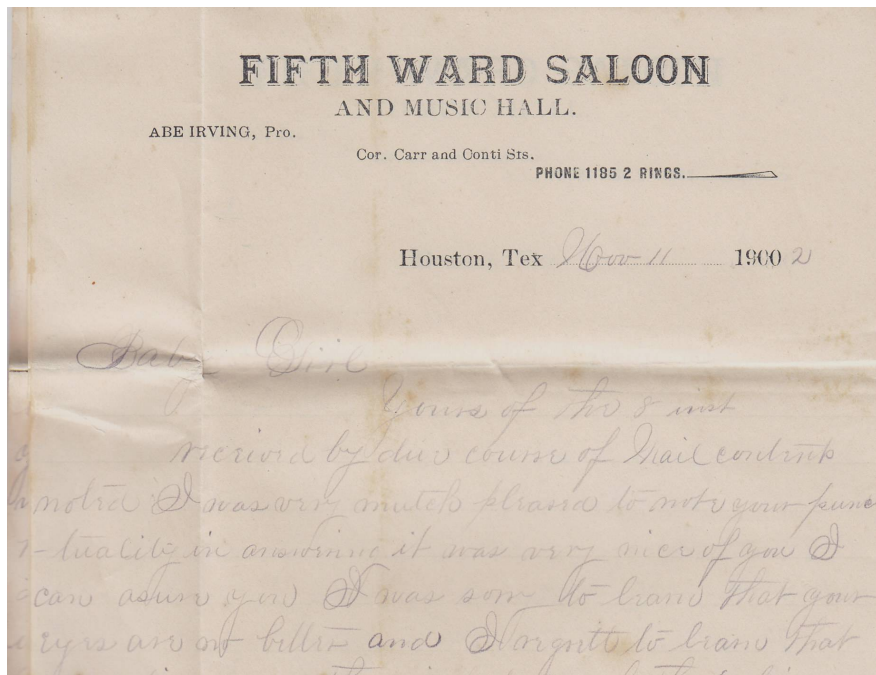 FIFTH WARD SALOON
AND MUSIC HALL.
ABE IRVING, Pro.
Cor. Carr and Conti Sts.
PHONE 1185 2 RINGS.
Houston, Tex Nov 11 1900 2
Baby Girl
Yours of the 8 inst
received by due course of Mail contents
noted I was very mutch pleased to note your punc
-tuality in answering it was very nice of you I
can asure you I was sorry to learn that your
eyes are not better and I regrett to learn that